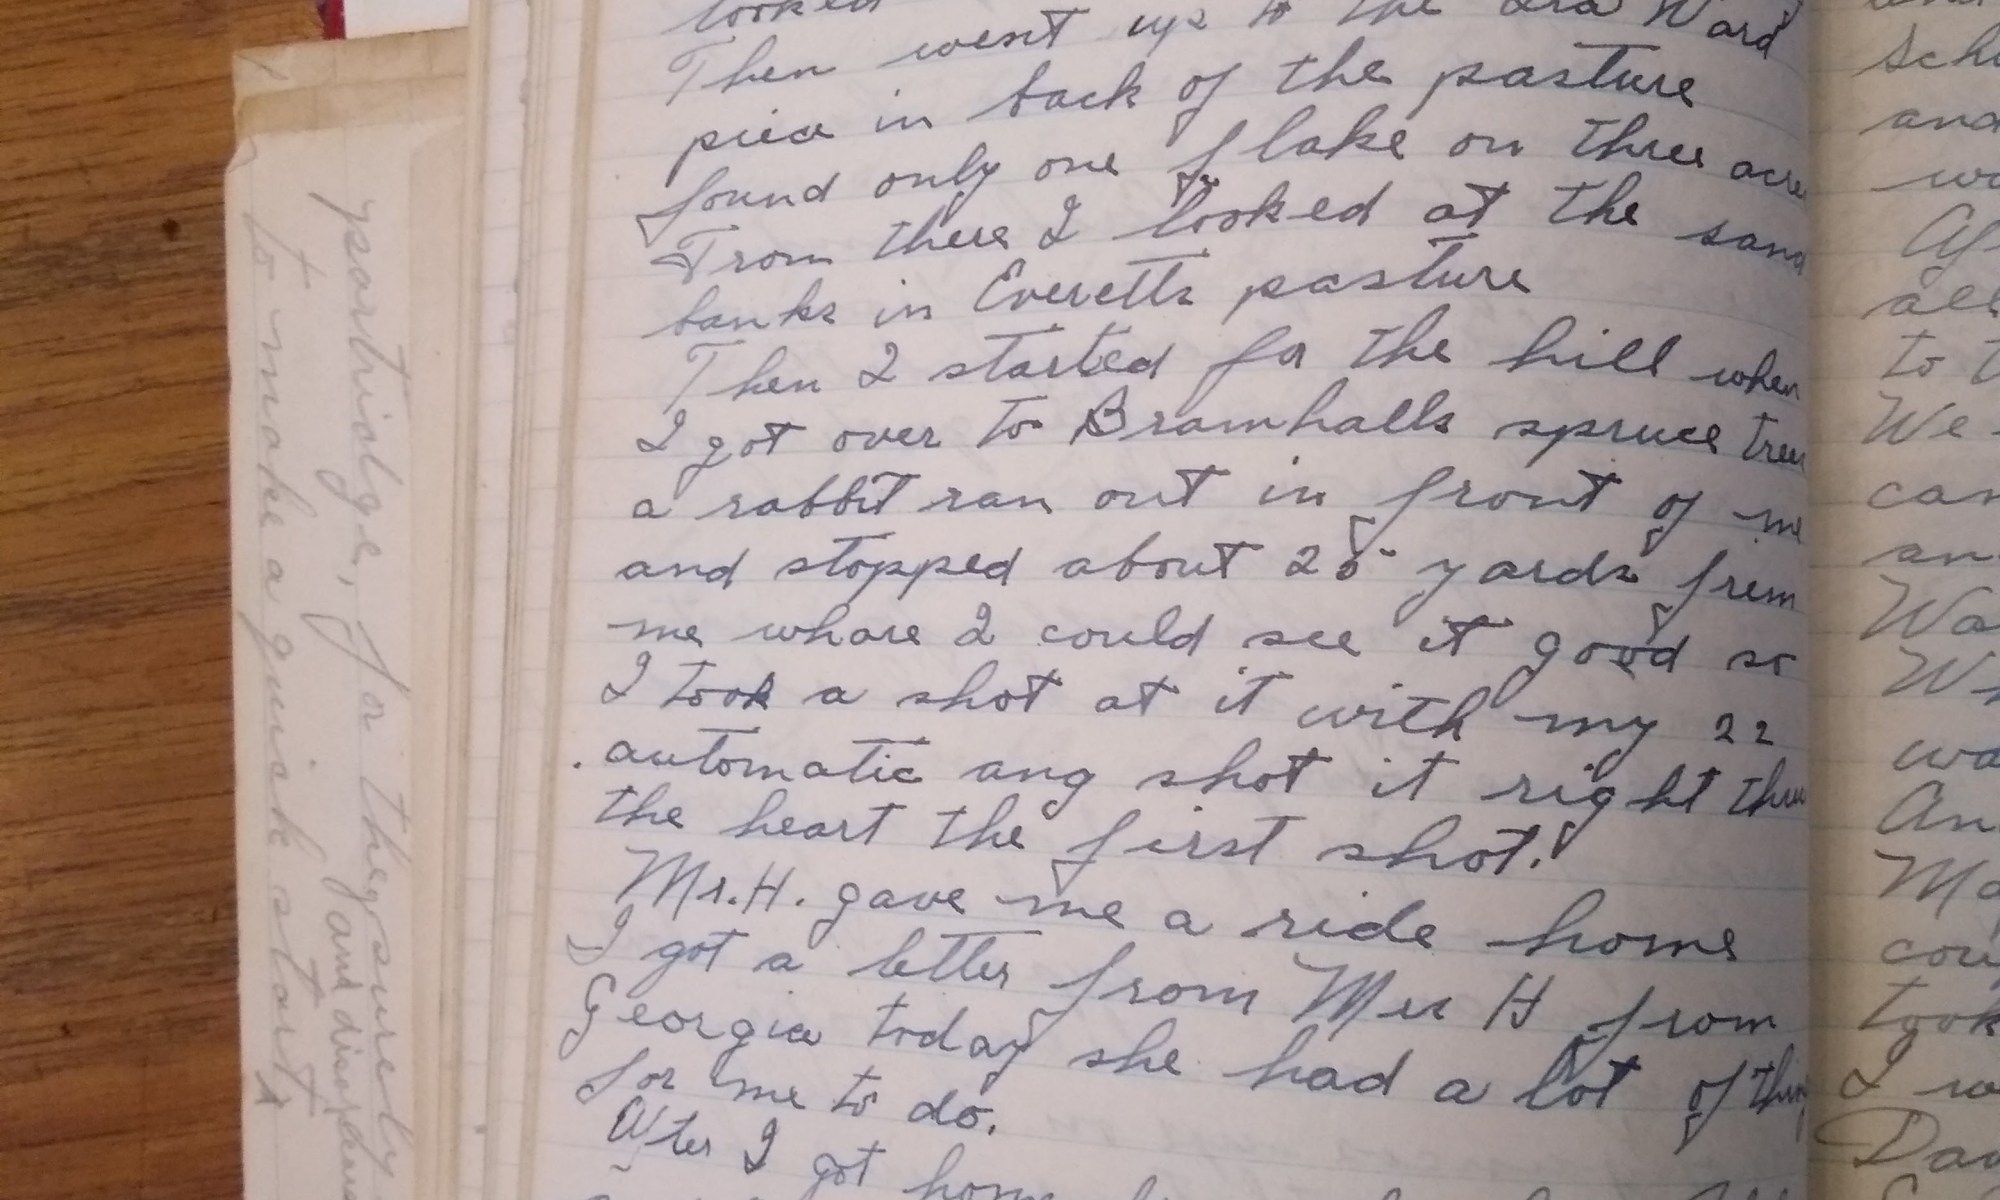 looked
Then went up to the Ira Ward
piece in back of the pasture
found only one flake on three acre
From there I looked at the sand
banks in Everetts pasture
Then I started for the hill when
I got over to Bramhalls spruce trees
a rabbit ran out in front of me
and stopped about 25 yards frem
me whare I could see it good so
I took a shot at it with my 22
automatic ang shot it right thru
the heart the first shot.
Mr. H. gave me a ride home
I got a letter from Mrs H from
Georgia today she had a lot of thing
for me to do.
After I got home
partridge, for they surely
and
to make a quick start
and
to t
We
can
an
took
I w